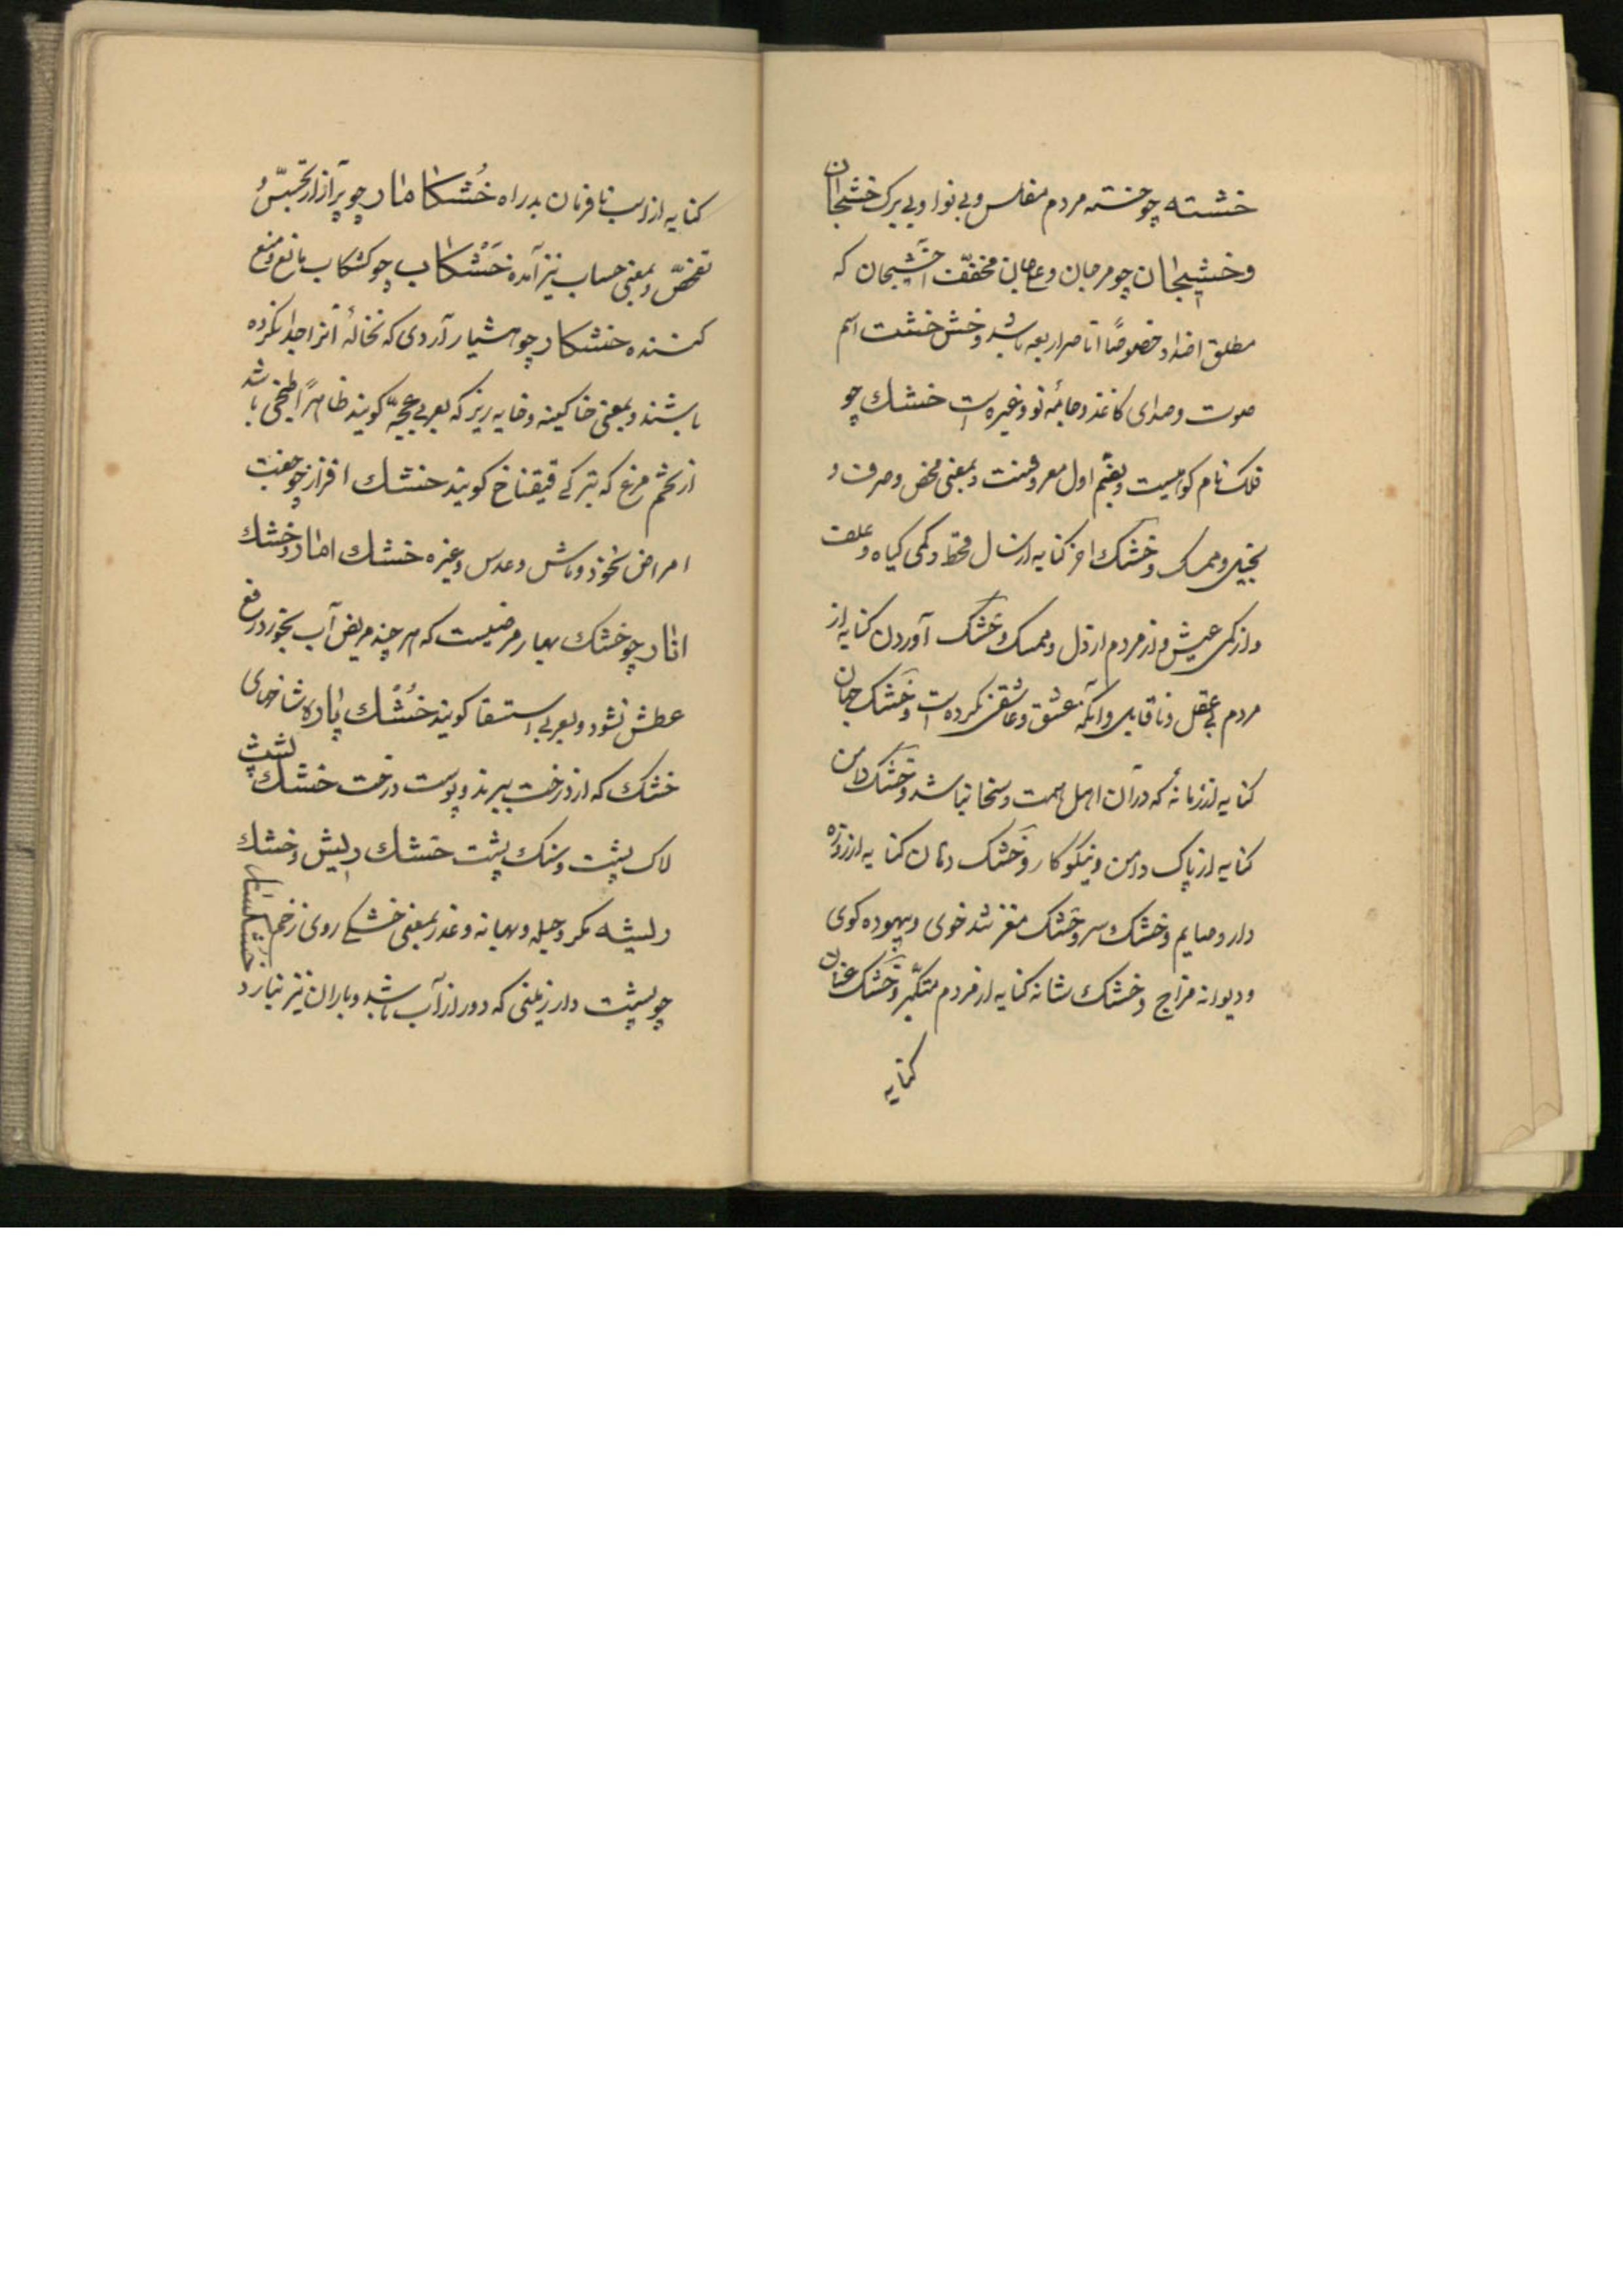 خشته چو خسته مردم مفلس و بی نوا و بی برک خشیجان
و خشیجان چو مرجان و عاجان مخفّف اخشیجان که
مطلق اضداد خصوصًا عناصر اربعه باشد و خش خشت اسم
صوت و صدای کاغذ و جامهٔ نو و غیره است خشك چو
فلک نام کوهیست و بضّم اول معروفست و بمعنی محض و صرف و
بخیل و ممسک و خشک اخر کنایه از سال قحط و کمی کیاه و علف
و از کمی عیش و از مردم ارذل و ممسک و خشک آوردن کنایه از
مردم بی عقل و ناقابل و آنکه عشق و عاشقی نکرده است و خشک جهان
کنایه از زمانهٔ که در آن اهل همت و سخا نباشد و خشک دامن
کنایه از پاک دامن و نیکوکار و خشک دهان کنایه از روزه
دار و صایم و خشک سر و خشک مغز تند خوی و بیهوده کوی
و دیوانه مزاج و خشک شانه کنایه از مردم متکبّر و خشک عنان
کنایه
کنایه از اسب نافرمان بدراه خُشکامار چو پرآزار تجسّس و
تفحّص و بمعنی حساب نیز آمده خَشکاب چو کشکاب مانع و منع
کننده خشکار چو هشیار آردی که نخالهٔ آنرا جدا نکرده
باشند و بمعنی خاکینه و خایه ریز که بعربی عجّه کویند ظاهرًا طبخی باشد
از تخم مرغ که بترکی قیقناخ کویند خشك افزار چو جفت
امراض نخود و ماش و عدس و غیره خشك امار و خشك
انار چو خشک بهار مرضیست که هر چند مریض آب بخورد رفع
عطش نشود و بعربی استسقا کویند خُشك پاره شاخهای
خشک که از درخت ببرند و پوست درخت خشك پشت
لاک پشت و سنک پشت خشك ریش و خشك
ریشه مکر و حیله و بهانه و غدر بمعنی خشکی روی زخم خشکسار
چو پشت دار زمینی که دور از آب باشد و باران نیز نبارد